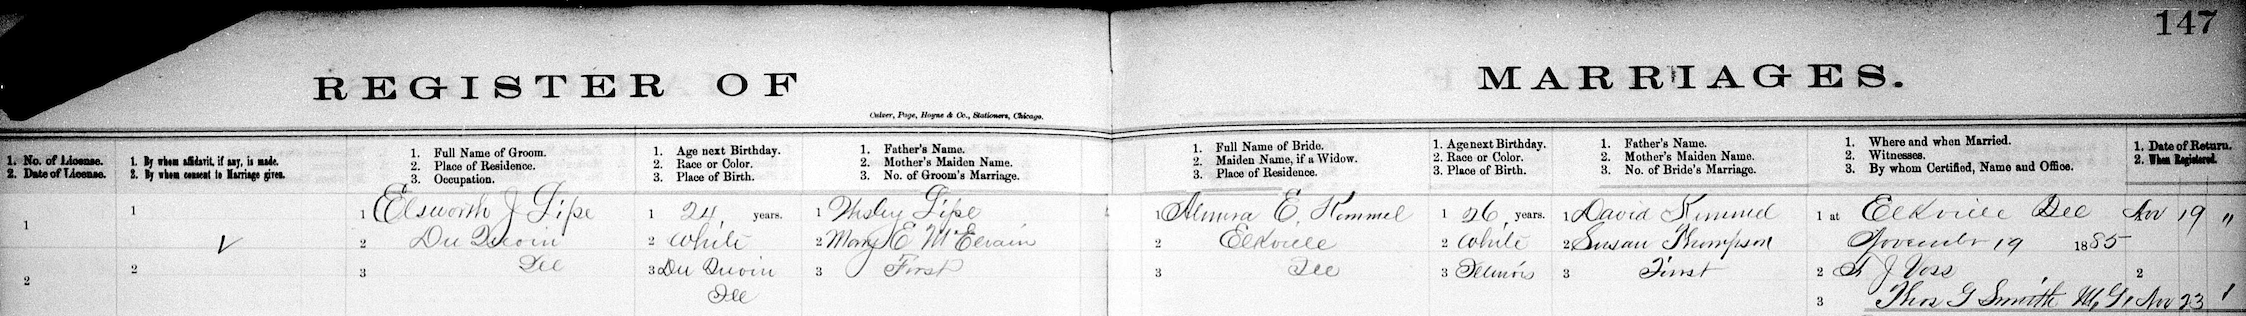 147
REGISTER OF MARRIAGES.
Culver, Page, Hoyne & Co., Stationers, Chicago.
1. No. of License.
2. Date of License.
1. By whom affidavit, if any, is made.
2. By whom consent to Marriage given.
1. Full Name of Groom.
2. Place of Residence.
3. Occupation.
1. Age next Birthday.
2. Race or Color.
3. Place of Birth.
1. Father's Name.
2. Mother's Maiden Name.
3. No. of Groom's Marriage.
1. Full Name of Bride.
2. Maiden Name, if a Widow.
3. Place of Residence.
1. Age next Birthday.
2. Race or Color.
3. Place of Birth.
1. Father's Name.
2. Mother's Maiden Name.
3. No. of Bride's Marriage.
1. Where and when Married.
2. Witnesses.
3. By whom Certified, Name and Office.
1. Date of Return.
2. When Registered.
1
2
1
2
1 Elsworth J Pipe
2 Du Quoin
3 Ill
1 24 years.
2 White
3 Du Quoin
Ill
1 Wesley Pipe
2 Mary E McElvain
3 First
1 Almira E. Kimmel
2 Elkville
3 Ill
1 26 years.
2 White
3 Illinois
1 David Kimmel
2 Susan Thompson
3 First
1 at Elkville Ill
November 19 1885
2 F J Voss
3 Thos G Smith M, G,
Nov 19 "
2
Nov 23